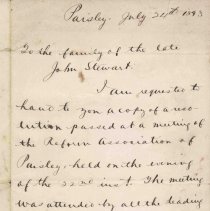 Paisley. July 24th 1893
To the family of the late
John Stewart.
I am requested to
hand to you a copy of a reso-
lution passed at a meeting of
the Reform Association of
Paisley, held on the evening
of the 22nd inst. The meeting
was attended by all the leading